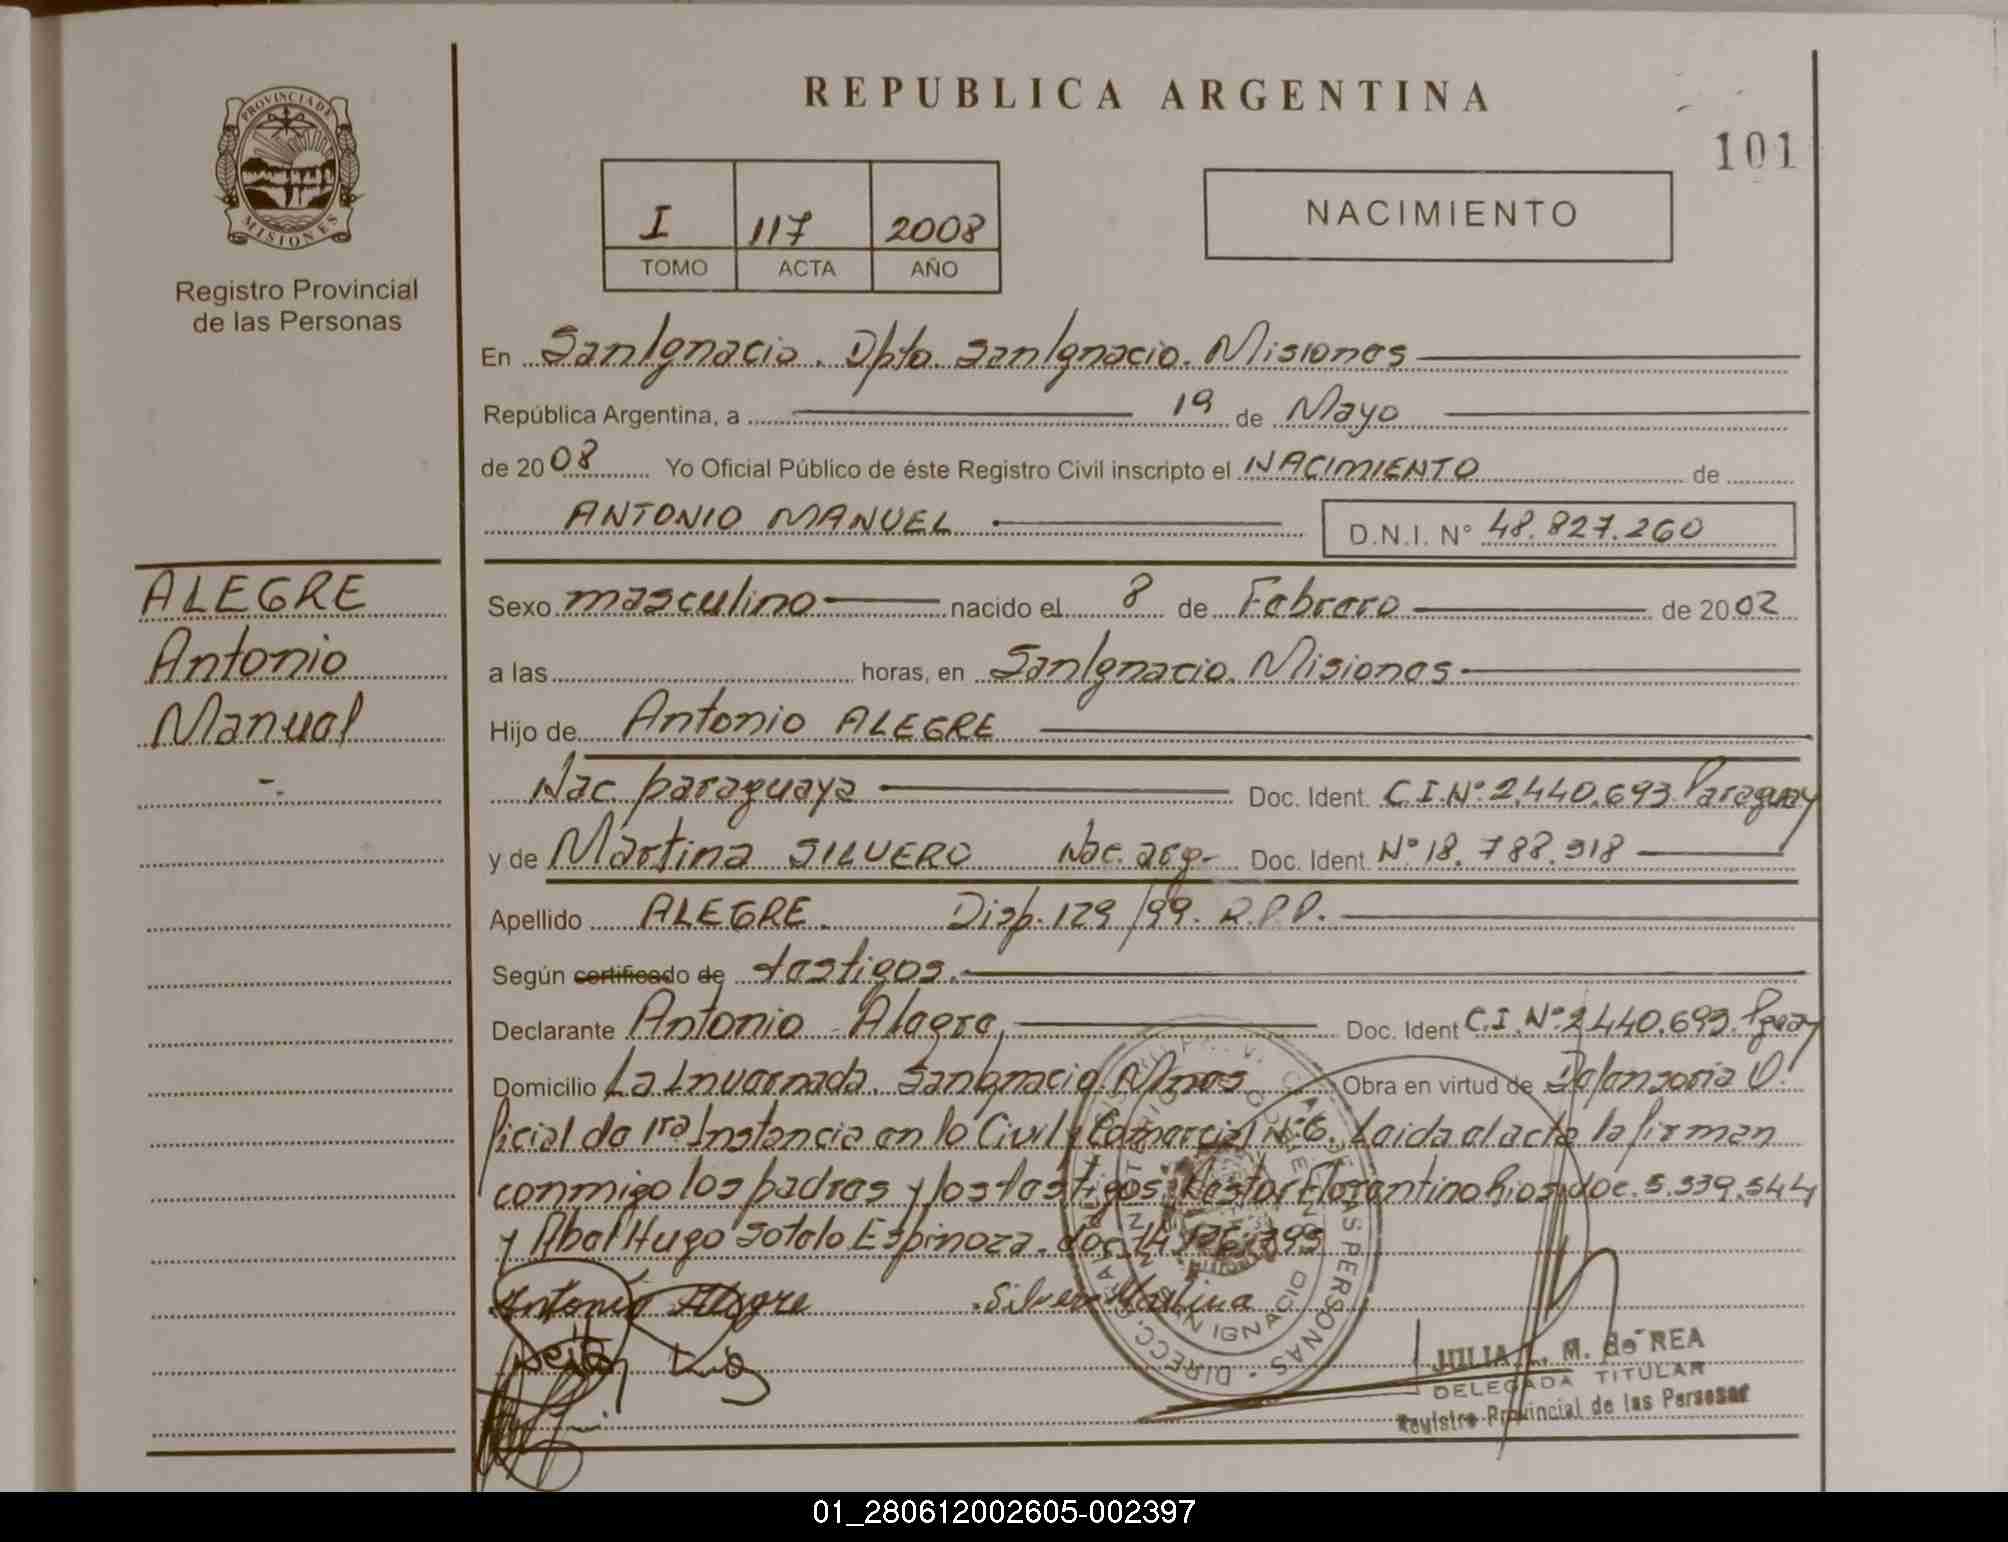 REPUBLICA ARGENTINA
101
PROVINCIA DE
MISIONES
Registro Provincial
de las Personas
I 117 2008
TOMO ACTA AÑO
NACIMIENTO
En San Ignacio. Dpto. San Ignacio. Misiones
República Argentina, a 19 de Mayo
de 20 08 Yo Oficial Público de éste Registro Civil inscripto el NACIMIENTO de
ANTONIO MANUEL D.N.I. N° 48.827.260
ALEGRE
Antonio
Manuel
-.
Sexo masculino nacido el 8 de Febrero de 20 02
a las horas, en San Ignacio. Misiones
Hijo de Antonio ALEGRE
Nac. paraguaya Doc. Ident. C.I.N° 2.440.693 Paraguay
y de Martina SILVERO Nac. arg- Doc. Ident. N° 18.788.918
Apellido ALEGRE. Disp. 129/99. R.P.P.
Según certificado de testigos.
Declarante Antonio Alegre, Doc. Ident C.I. N° 2.440.693. Pguay
Domicilio La Invernada. San Ignacio. Mnes Obra en virtud de Defensoria O
ficial de 1ra Instancia en lo Civil y Comercial N° 6. Leida el acta la firman
conmigo los padres y los testigos Nestor Florentino Rios doc. 5.339.544
y Abel Hugo Sotelo Espinoza. doc. 14
Antonio Alegre Silvero Martina
SAN IGNACIO
JULIA L. M. de REA
DELEGADA TITULAR
Registro Provincial de las Personas
01_280612002605-002397